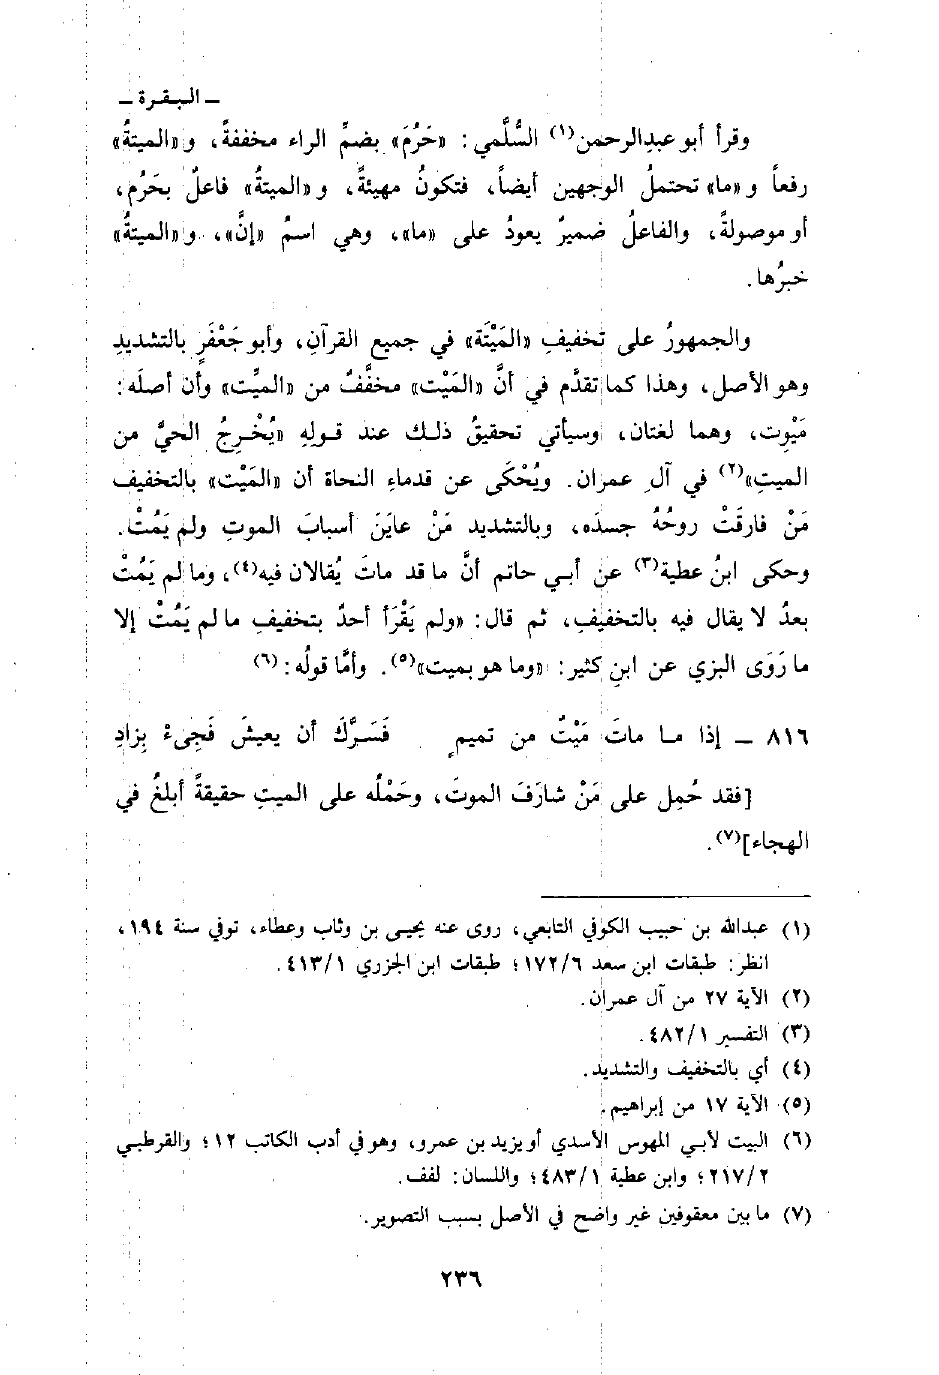 ـ البقرة ـ
وقرأ أبو عبدالرحمن(١) السُّلَمي: «حَرُمَ» بضمِّ الراء مخففةً، و«الميتةُ»
رفعاً و«ما» تحتملُ الوجهين أيضاً، فتكونُ مهيئةً، و«الميتةُ» فاعلٌ بحَرُم،
أو موصولةً، والفاعلُ ضميرٌ يعودُ على «ما»، وهي اسمُ «إنَّ»، و«الميتةُ»
خبرُها.
والجمهورُ على تخفيفِ «المَيْتَة» في جميع القرآنِ، وأبو جَعْفَرٍ بالتشديدِ
وهو الأصل، وهذا كما تقدَّم في أنَّ «المَيْت» مخفَّفٌ من «الميِّت» وأن أصلَه:
مَيْوِت، وهما لغتان، وسيأتي تحقيقُ ذلك عند قولِهِ «يُخْرِجُ الحيَّ من
الميتِ»(٢) في آلِ عمران. ويُحْكَى عن قدماءِ النحاة أن «المَيْت» بالتخفيف
مَنْ فارقَتْ روحُهُ جسدَه، وبالتشديد مَنْ عايَنَ أسبابَ الموتِ ولم يَمُتْ.
وحكى ابنُ عطية(٣) عن أبي حاتم أنَّ ما قد ماتَ يُقالان فيه(٤)، وما لم يَمُتْ
بعدُ لا يقال فيه بالتخفيفِ، ثم قال: «ولم يَقْرَأ أحدٌ بتخفيفِ ما لم يَمُتْ إلا
ما رَوَى البزي عن ابنِ كثير: «وما هو بميت»(٥). وأمَّا قولُه:(٦)
٨١٦ ـ إذا ما ماتَ مَيْتٌ من تميمٍ فَسَرَّكَ أن يعيشَ فَجِىءْ بِزادِ
[فقد حُمِل على مَنْ شارَفَ الموتَ، وحَمْلُه على الميتِ حقيقةً أبلغُ في
الهجاء](٧).
(١) عبدالله بن حبيب الكوفي التابعي، روى عنه يحيى بن وثاب وعطاء، توفي سنة ١٩٤،
انظر: طبقات ابن سعد ١٧٢/٦؛ طبقات ابن الجزري ٤١٣/١.
(٢) الآية ٢٧ من آل عمران.
(٣) التفسير ٤٨٢/١.
(٤) أي بالتخفيف والتشديد.
(٥) الآية ١٧ من إبراهيم.
(٦) البيت لأبي المهوس الأسدي أو يزيد بن عمرو، وهو في أدب الكاتب ١٢؛ والقرطبي
٢١٧/٢؛ وابن عطية ٤٨٣/١؛ واللسان: لفف.
(٧) ما بين معقوفين غير واضح في الأصل بسبب التصوير.
٢٣٦